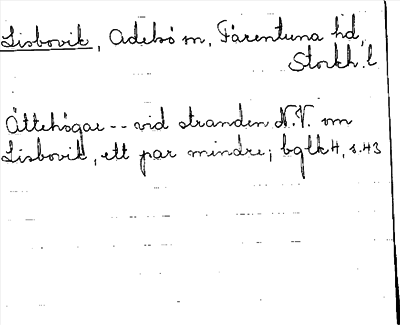 Lisbovik, Adelsö sn, Färentuna hd,
Stockh. l
Ättehögar -- vid stranden N.V. om
Lisbovik, ett par mindre; bqlk 4, s. 43